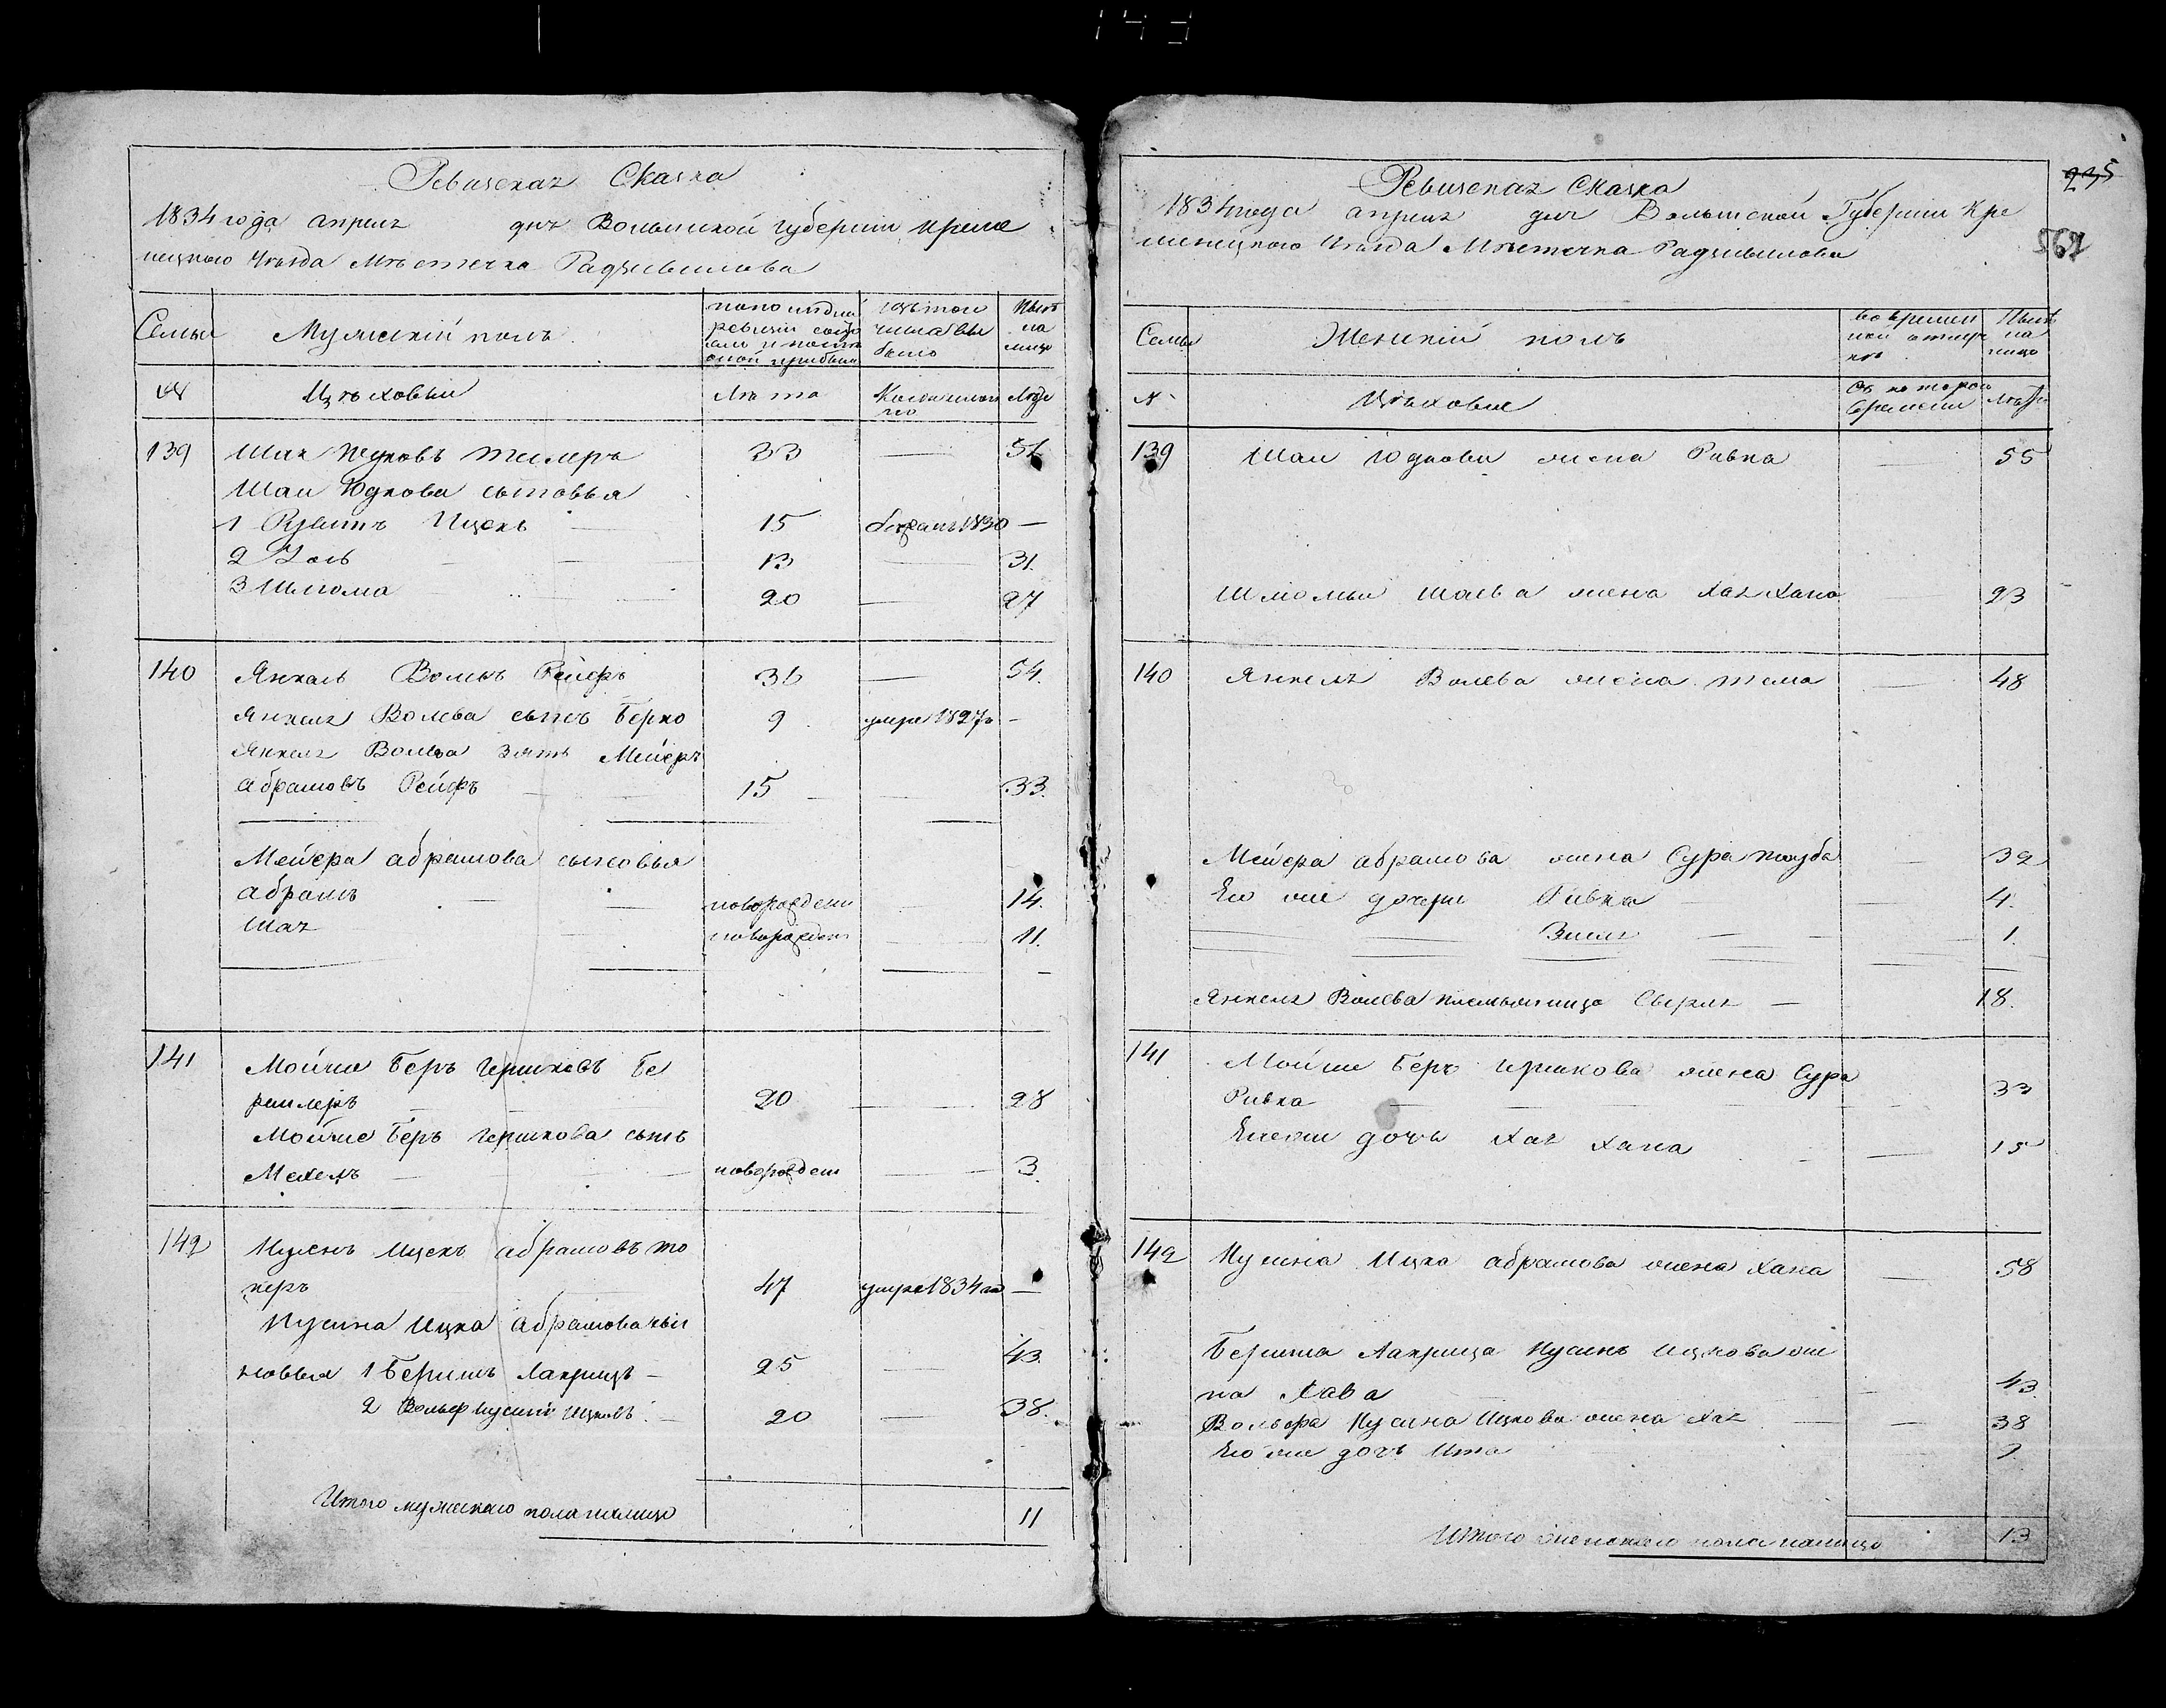 Ревизская Сказка
1834 года апреля дня Волынской губернии Креме
нецкого Уезда Местечка Радзивилова
Семьи
Мужеский полъ
Ныне на лицо
№
Цеховыи
Лета
Лета
139
Шая Юдковъ
33
51
Шаи Юдкова сыновья
1 Рувинъ Ицекъ
15
1830
—
2
13
31.
3 Шлиома
20
27
140
Янкель Волевъ Рейфъ
36
54.
Янкеля Волева сынъ Берко
9
умре 1827г
—
Янкеля Волева зять Мейеръ
абрамовъ Рейфъ
15
33.
Мейера абрамова сыновья
абрамъ
новорожден
14.
Шая
новорожден
11.
141
Мойше Беръ Гершковъ Бе
рлилеръ
20
28
Мойше Беръ Гершкова сынъ
Мехель
новорожден
3
142
Нусенъ Ицекъ абрамовъ то
керъ
47
умре 1834го
—
Нусина Ицка абрамова сы
новья 1 Беришъ Лакрицъ
25
43.
2 Вольф Нусинъ Ицковъ
20
38.
Итого мужеска пола налицо
11
235
562
Ревизская Сказка
1834 года апреля дня Волынской Губернии Кре
менецкого Уезда Местечка Радзивилова
Семьи
Женский полъ
Ныне на лицо
№
Цеховые
Лета
139
Шаи Юдкова жена Ривка
55
Шлиомы Шаева жена Хая Хана
23
140
Янкеля Волева жена
48
Мейера абрамова жена Сура
32
Ею же дочери Ривка
4.
Зисля
1.
Янкеля Волева племянница Сверля
18.
141
Мойше Беръ Гершкова жена Сура
Ривка
33
Ею же дочь Хая Хана
15
142
Нусина Ицка абрамова жена Хана
58
Бериша Лакрица Нусинъ Ицкова же
на Хава
43.
Вольфа Нусина Ицкова жена Хая
38
Ею же дочь Ита
Итого женского пола налицо
13